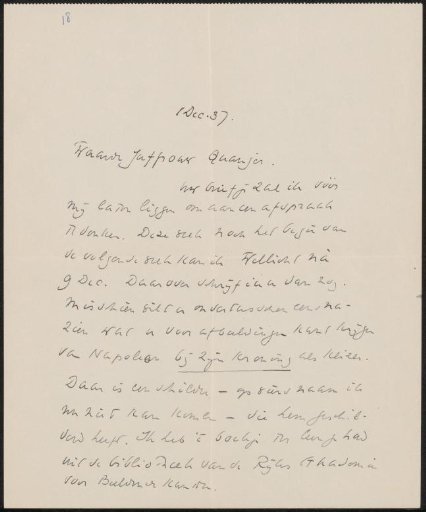 18
1 Dec. 37.
Waarde Juffrouw Quanjer.
Uw briefje zal ik vóór
mij laten liggen om aan een afspraak
te denken. Deze week noch het begin van
de volgende week kan ik. Wellicht na
9 Dec. Daarover schrijf ik u dan nog.
Misschien wilt u ondertusschen eens na-
zien wat u voor afbeeldingen kunt krijgen
van Napoleon bij zijn kroning als Keizer.
Daar is een schilder – op wiens naam ik
nu niet kan komen – die hem geschil-
derd heeft. Ik heb 't boekje ter leen gehad
uit de bibliotheek van de Rijks Akademie
voor Beeldende Kunsten.